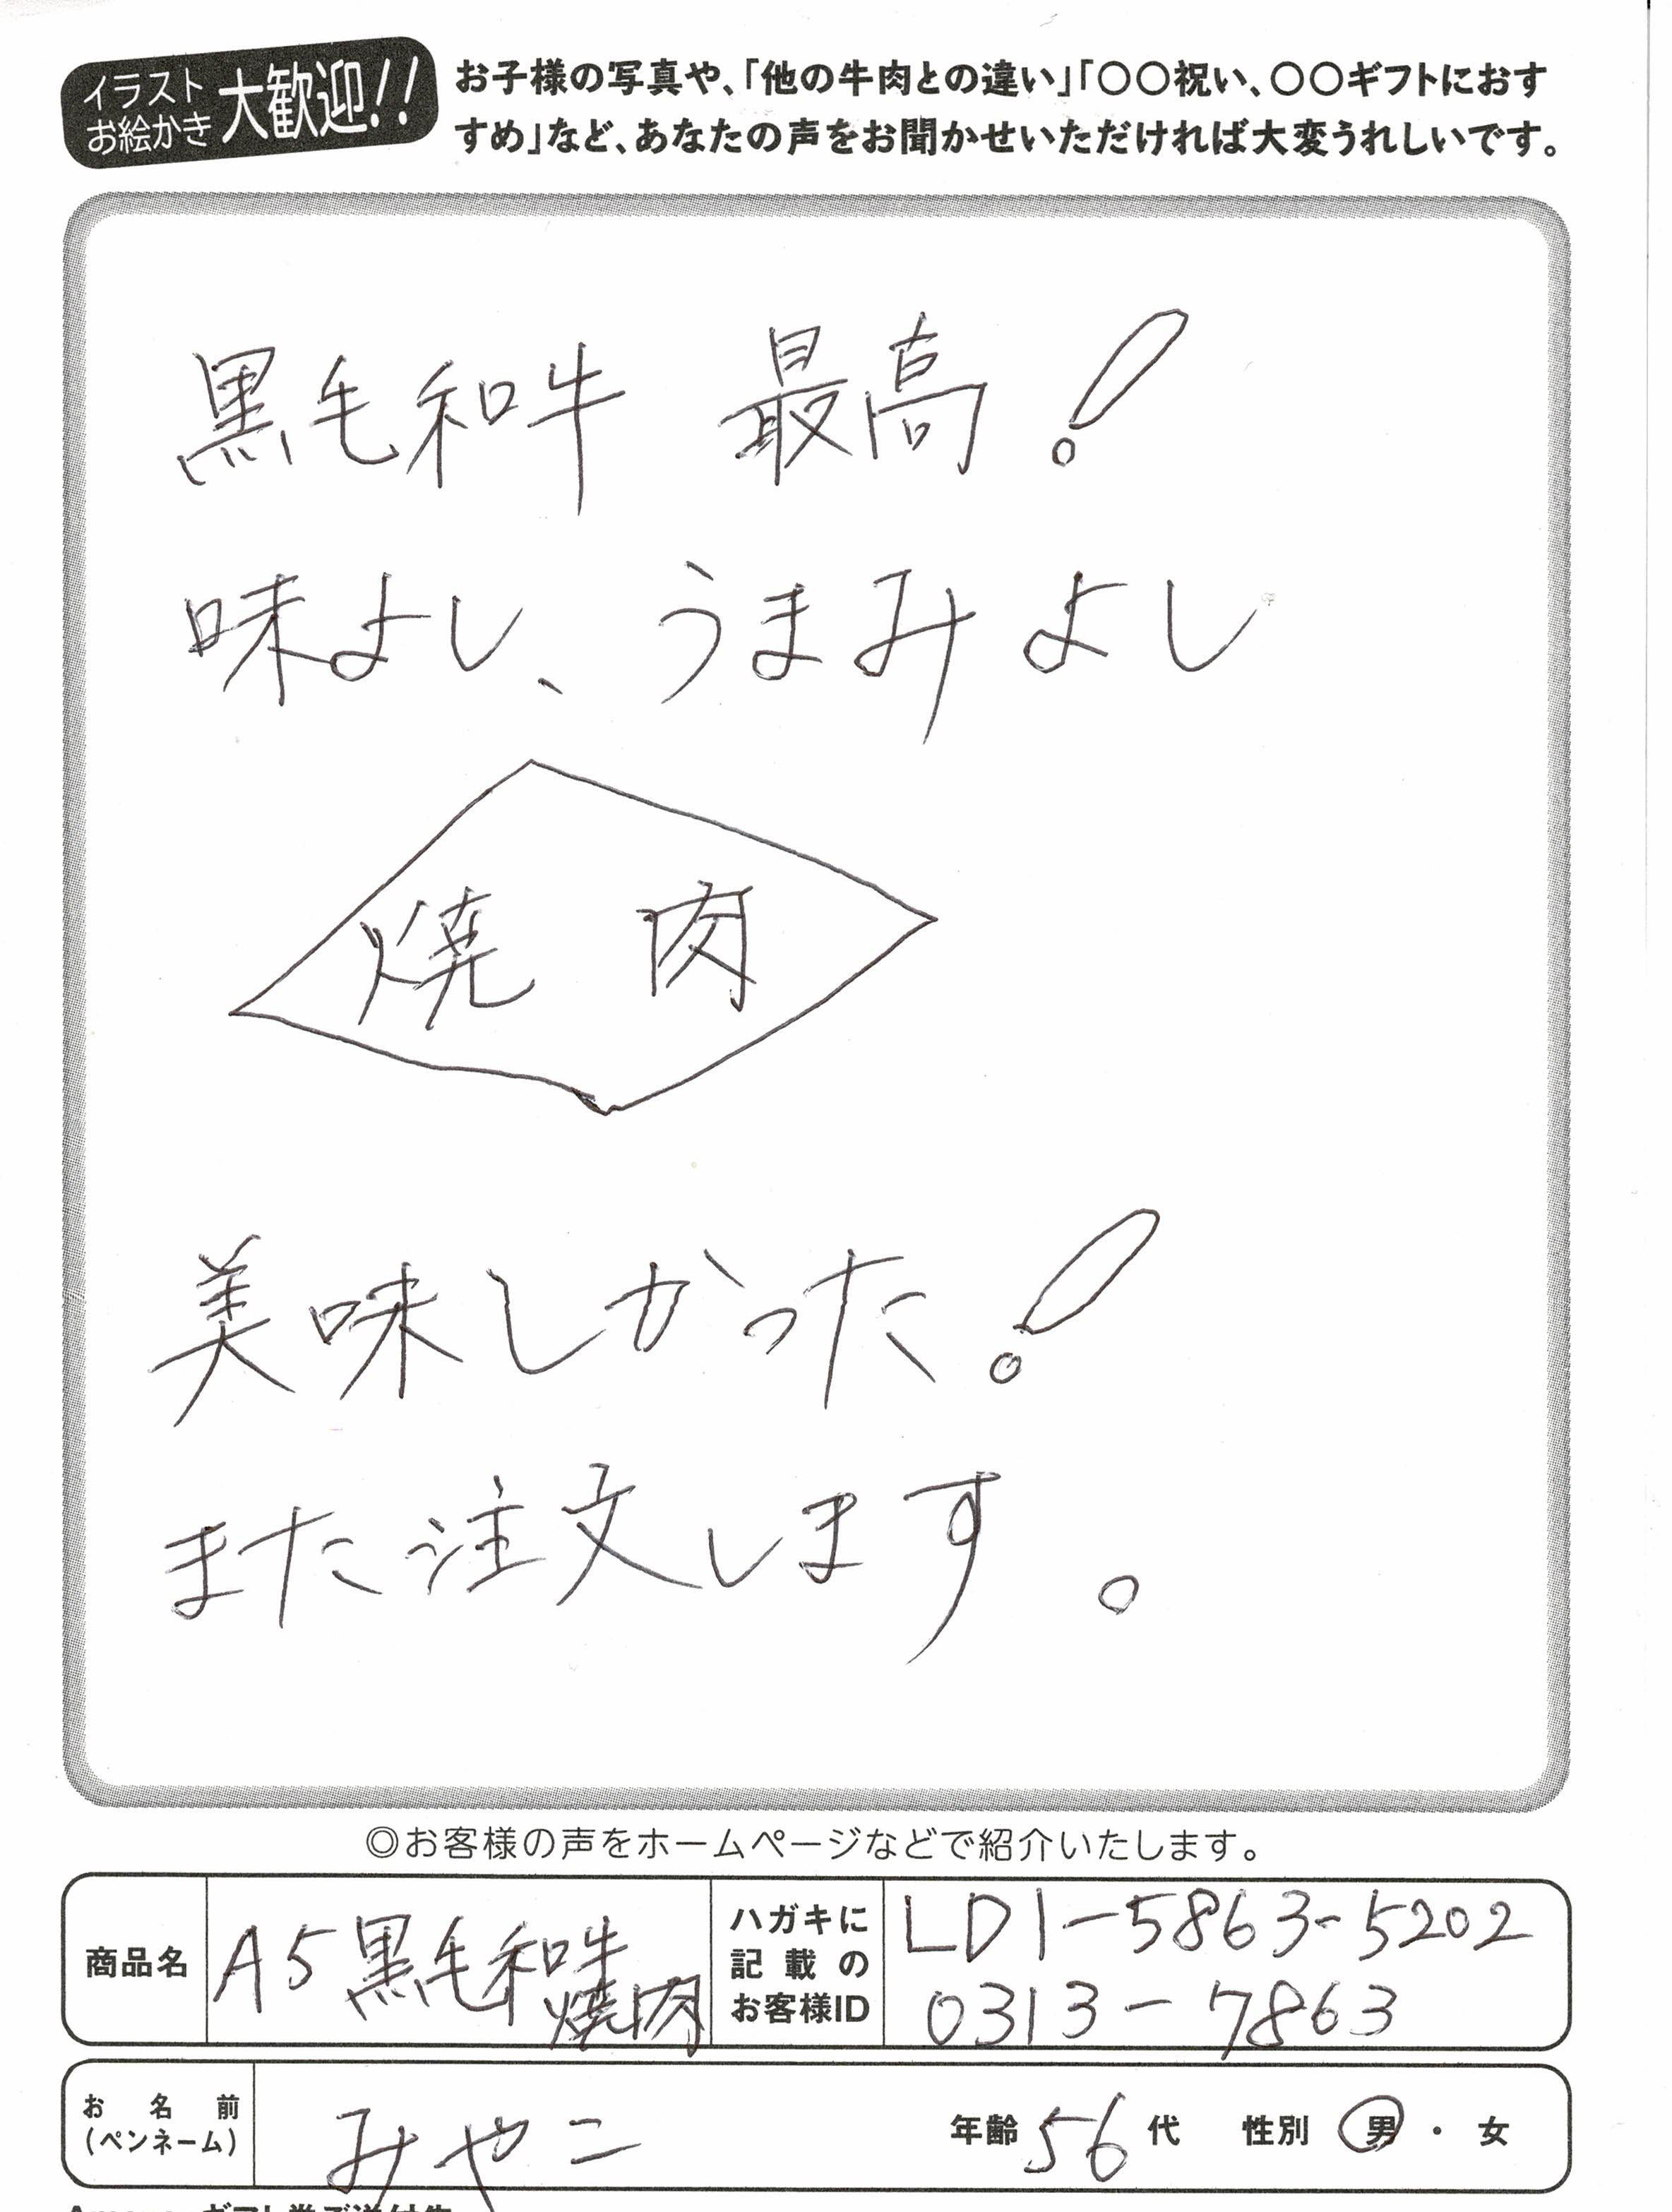 イラスト
お絵かき
大歓迎!!
お子様の写真や、「他の牛肉との違い」「〇〇祝い、〇〇ギフトにおす
すめ」など、あなたの声をお聞かせいただければ大変うれしいです。
黒毛和牛 最高!
味よし、うまみよし
焼肉
美味しかった!
また注文します。
◎お客様の声をホームページなどで紹介いたします。
商品名
A5黒毛和牛
焼肉
ハガキに
記載の
お客様ID
LD1-5863-5202
0313-7863
お名前
(ペンネーム)
みやこ
年齢 56 代 性別 男・女